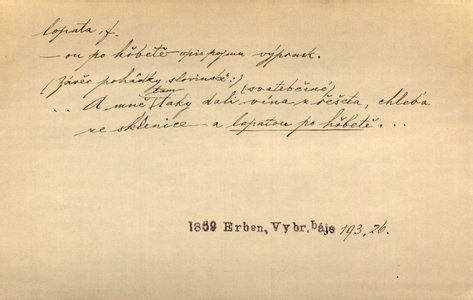 lopata, f.
– ou po hřbetě opis pojmu výprask.
(Závěr pohádky slovinské:)
tam (svatebčané)
.. A mně taky dali vína z řešeta, chleba
ze sklenice a lopatou po hřbetě. ...
1869 Erben, Vybr. báje 193, 26.